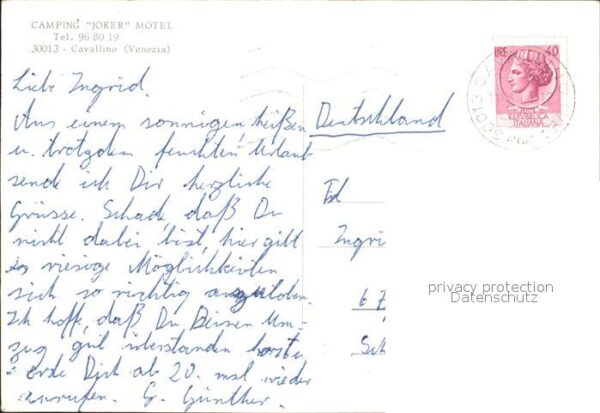 CAMPING "JOKER" MOTEL
Tel. 96 80 19
30013 - Cavallino (Venezia)
LIRE 40
REPVBBLICA
ITALIANA
30013 CA
Liebe Ingrid,
Aus einem sonnigen, heißen
u. trotzdem feuchten Urlaub
sende ich Dir herzliche
Grüsse. Schade, daß Du
nicht dabei bist, hier gibt
es riesige Möglichkeiten
sich so richtig
Ich hoffe, daß Du Deinen Um-
zug gut überstanden hast.
werde Dich ab 20. mal wieder
anrufen. G. Günther.
Deutschland
Frl
Ingri
67
Sch
privacy protection
Datenschutz